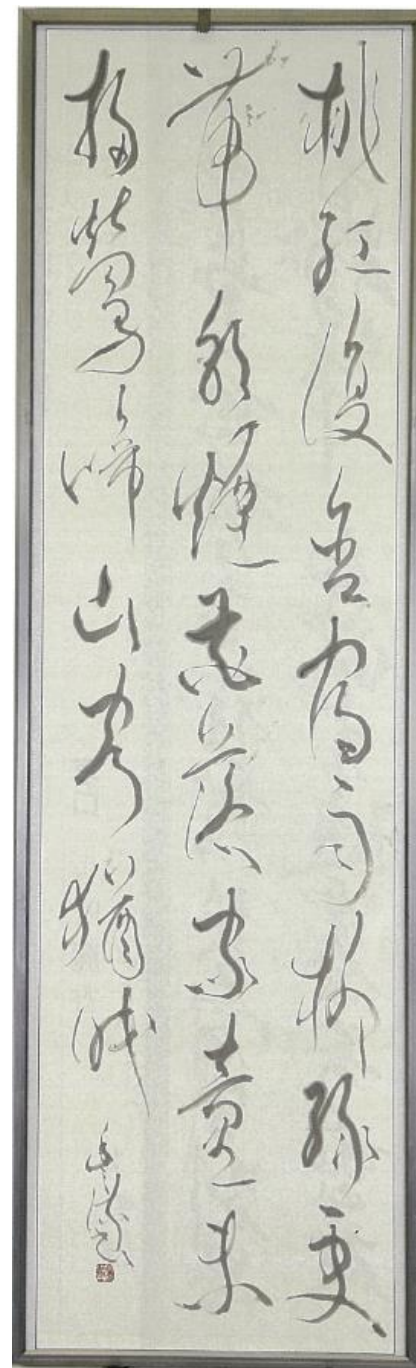 桃紅復含宿雨柳綠更
帶朝煙花落家童未
掃鶯啼山客猶眠